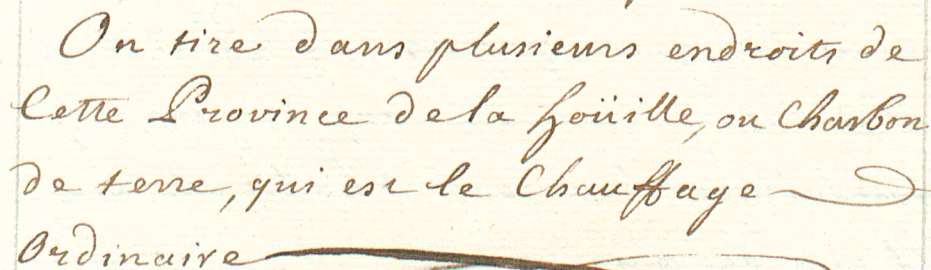 On tire dans plusieurs endroits de
Cette Province de la hoüille, ou Charbon
de terre, qui est le Chauffage
Ordinaire